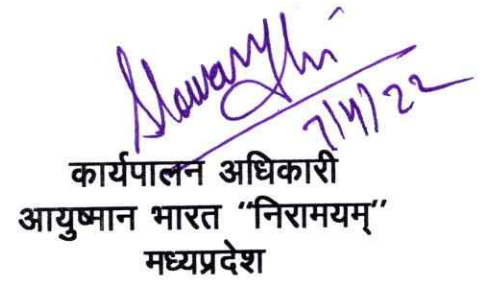 7/4/22
कार्यपालन अधिकारी
आयुष्मान भारत “निरामयम्”
मध्यप्रदेश